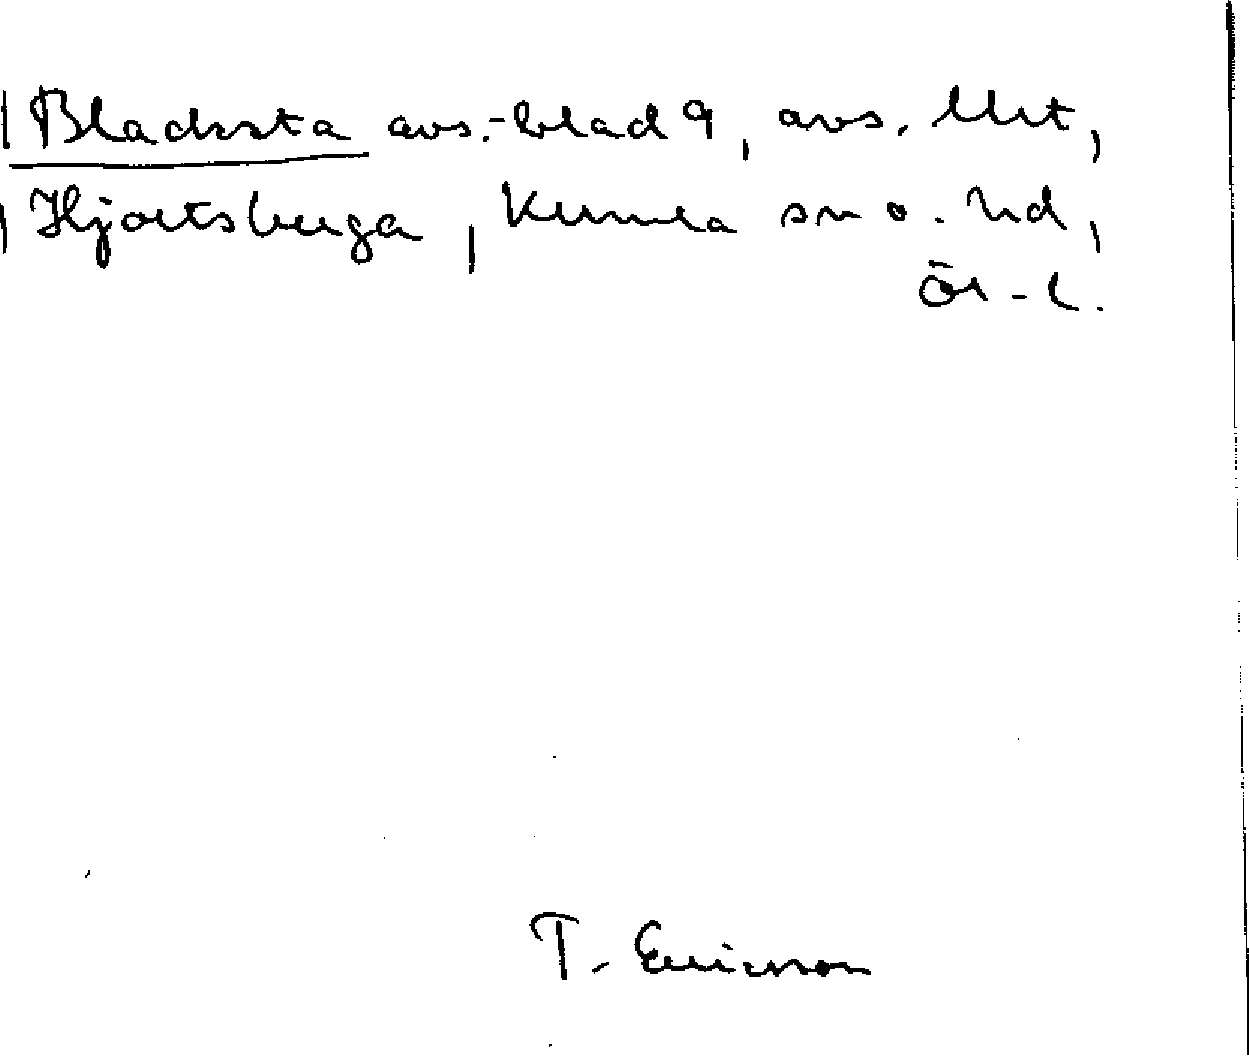 Blacksta avs.-blad 9, avs. Urt,
Hjortsberga, Kumla sn o. hd,
Ör-l.
T. Ericsson